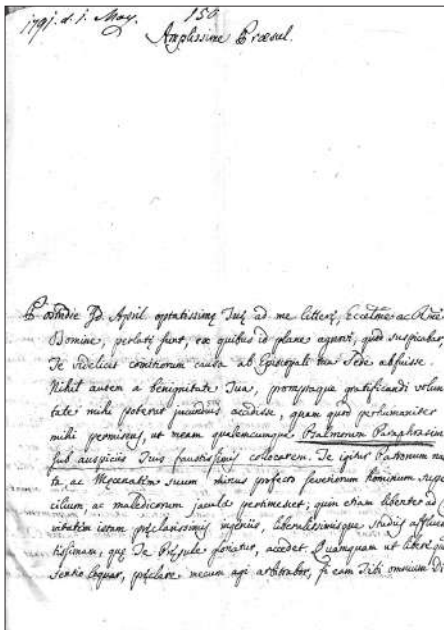 1791. d. 1. May. 150
Amplissime Præsul.
Postridie Id. April. optatissimę Tuę ad me litterę, Eccelme ac Rme
Domine, perlatę sunt, ex quibus id plane agnovi, quod suspicabar,
Te videlicet comitiorum causa ab Episcopali tua Sede abfuisse.
Nihil autem a benignitate Tua, promptaque gratificandi volun
tate mihi poterat jucundius accidisse, quam quod perhumaniter
mihi permiseris, ut meam qualemcunque Psalmorum Paraphrasin
sub auspiciis Tuis faustissimis collocarem. Te igitur Patronum na
cta, ac Męcenatem suum minus profecto severiorum hominum super
cilium, ac maledicorum jacula pertimescet; quin etiam libenter ad
vitatem istam pręclarissimis ingeniis, liberalissimisque studiis affluen
tissimam, quę Te Pręsule gloriatur, accedet. Quamquam ut libere quod
sentio loquar, pręclare mecum agi arbitrabor, si eam Tibi omnium